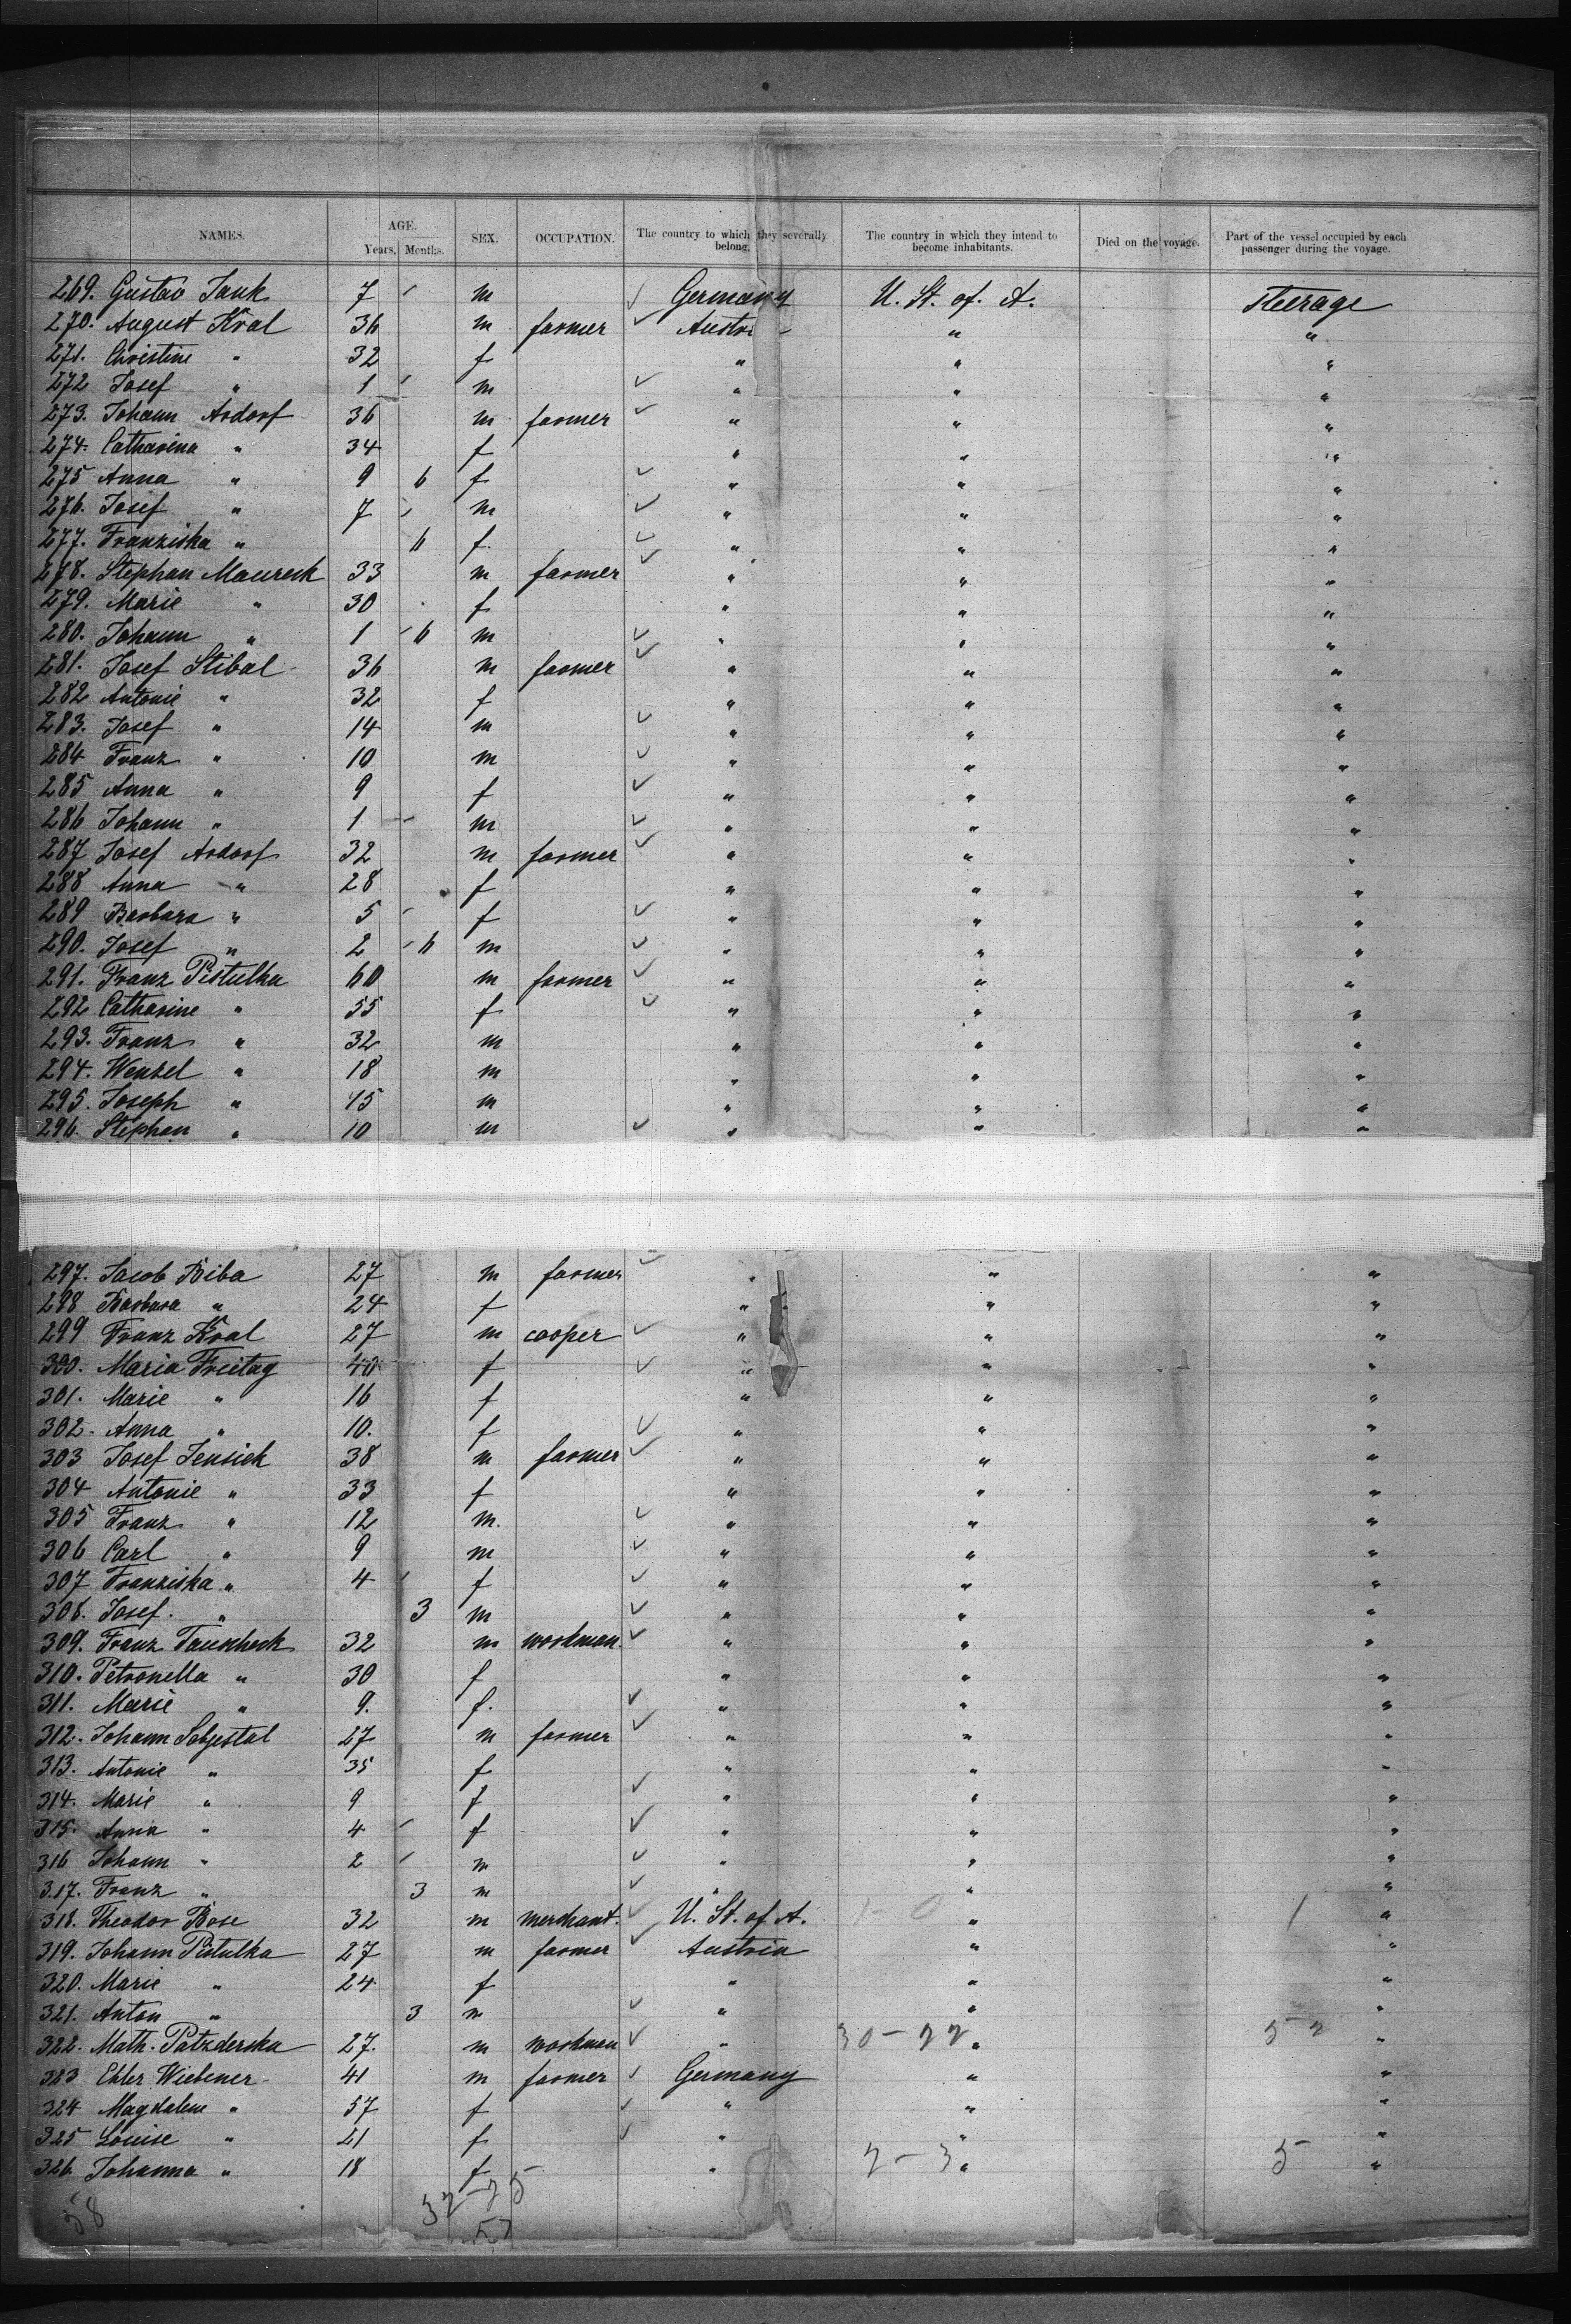 NAMES. AGE. Years, Months. SEX. OCCUPATION. The country to which they severally belong. The country in which they intend to become inhabitants. Died on the voyage. Part of the vessel occupied by each passenger during the voyage.
269. Gustav Jank 7 m Germany U. St. of. A. Steerage
270. August Kral 36 m farmer Austri " "
271. Christine " 32 f " " "
272 Josef " 1 m " " "
273. Johann Ardorf 36 m farmer " " "
274. Catharina " 34 f " " "
275 Anna " 9 6 f " " "
276. Josef " 7 m " " "
277. Franziska " 6 f. " " "
278. Stephan Maureck 33 m farmer " " "
279. Marie " 30 f " " "
280. Johann " 1 6 m " " "
281. Josef Stibal 36 m farmer " " "
282 Antonie " 32 f " " "
283. Josef " 14 m " " "
284 Franz " 10 m " " "
285 Anna " 9 f " " "
286 Johann " 1 m " " "
287 Josef Ardorf 32 m farmer " " "
288 Anna " 28 f " " "
289 Barbara " 5 f " " "
290. Josef " 2 6 m " " "
291. Franz Pistulka 60 m farmer " " "
292 Catharine " 55 f " " "
293. Franz " 32 m " " "
294. Wenzel " 18 m " " "
295. Joseph " 15 m " " "
296. Stephan " 10 m " " "
297. Jacob Biba 27 m farmer " " "
298 Barbara " 24 f " " "
299 Franz Kral 27 m cooper " " "
300. Maria Freitag 40 f " " "
301. Marie " 16 f " " "
302. Anna " 10. f " " "
303 Josef Jensick 38 m farmer " " "
304 Antonie " 33 f " " "
305 Franz " 12 m. " " "
306 Carl " 9 m " " "
307 Franziska " 4 f " " "
308. Josef. " 3 m " " "
309. Franz Tauscheck 32 m workman. " " "
310. Petronella " 30 f " " "
311. Marie " 9. f. " " "
312. Johann 27 m farmer " " "
313. Antonie " 35 f " " "
314. Marie " 9 f " " "
315. Anna " 4 f " " "
316 Johann " 2 m " " "
317. Franz " 3 m " " "
318. Theodor Bose 32 m merchant. U. St. of A. 1-0 " 1 "
319. Johann Pistulka 27 m farmer Austria " "
320. Marie " 24 f " " "
321. Anton " 3 m " " "
322. Math. Patzderska 27. m workman " 30-22 " 52 "
323 Ehler Wiebener 41 m farmer Germany " "
324 Magdalene " 57 f " " "
325 Louise " 21 f " " "
326 Johanna " 18 f " 2-3 " 5 "
58 32-25
57